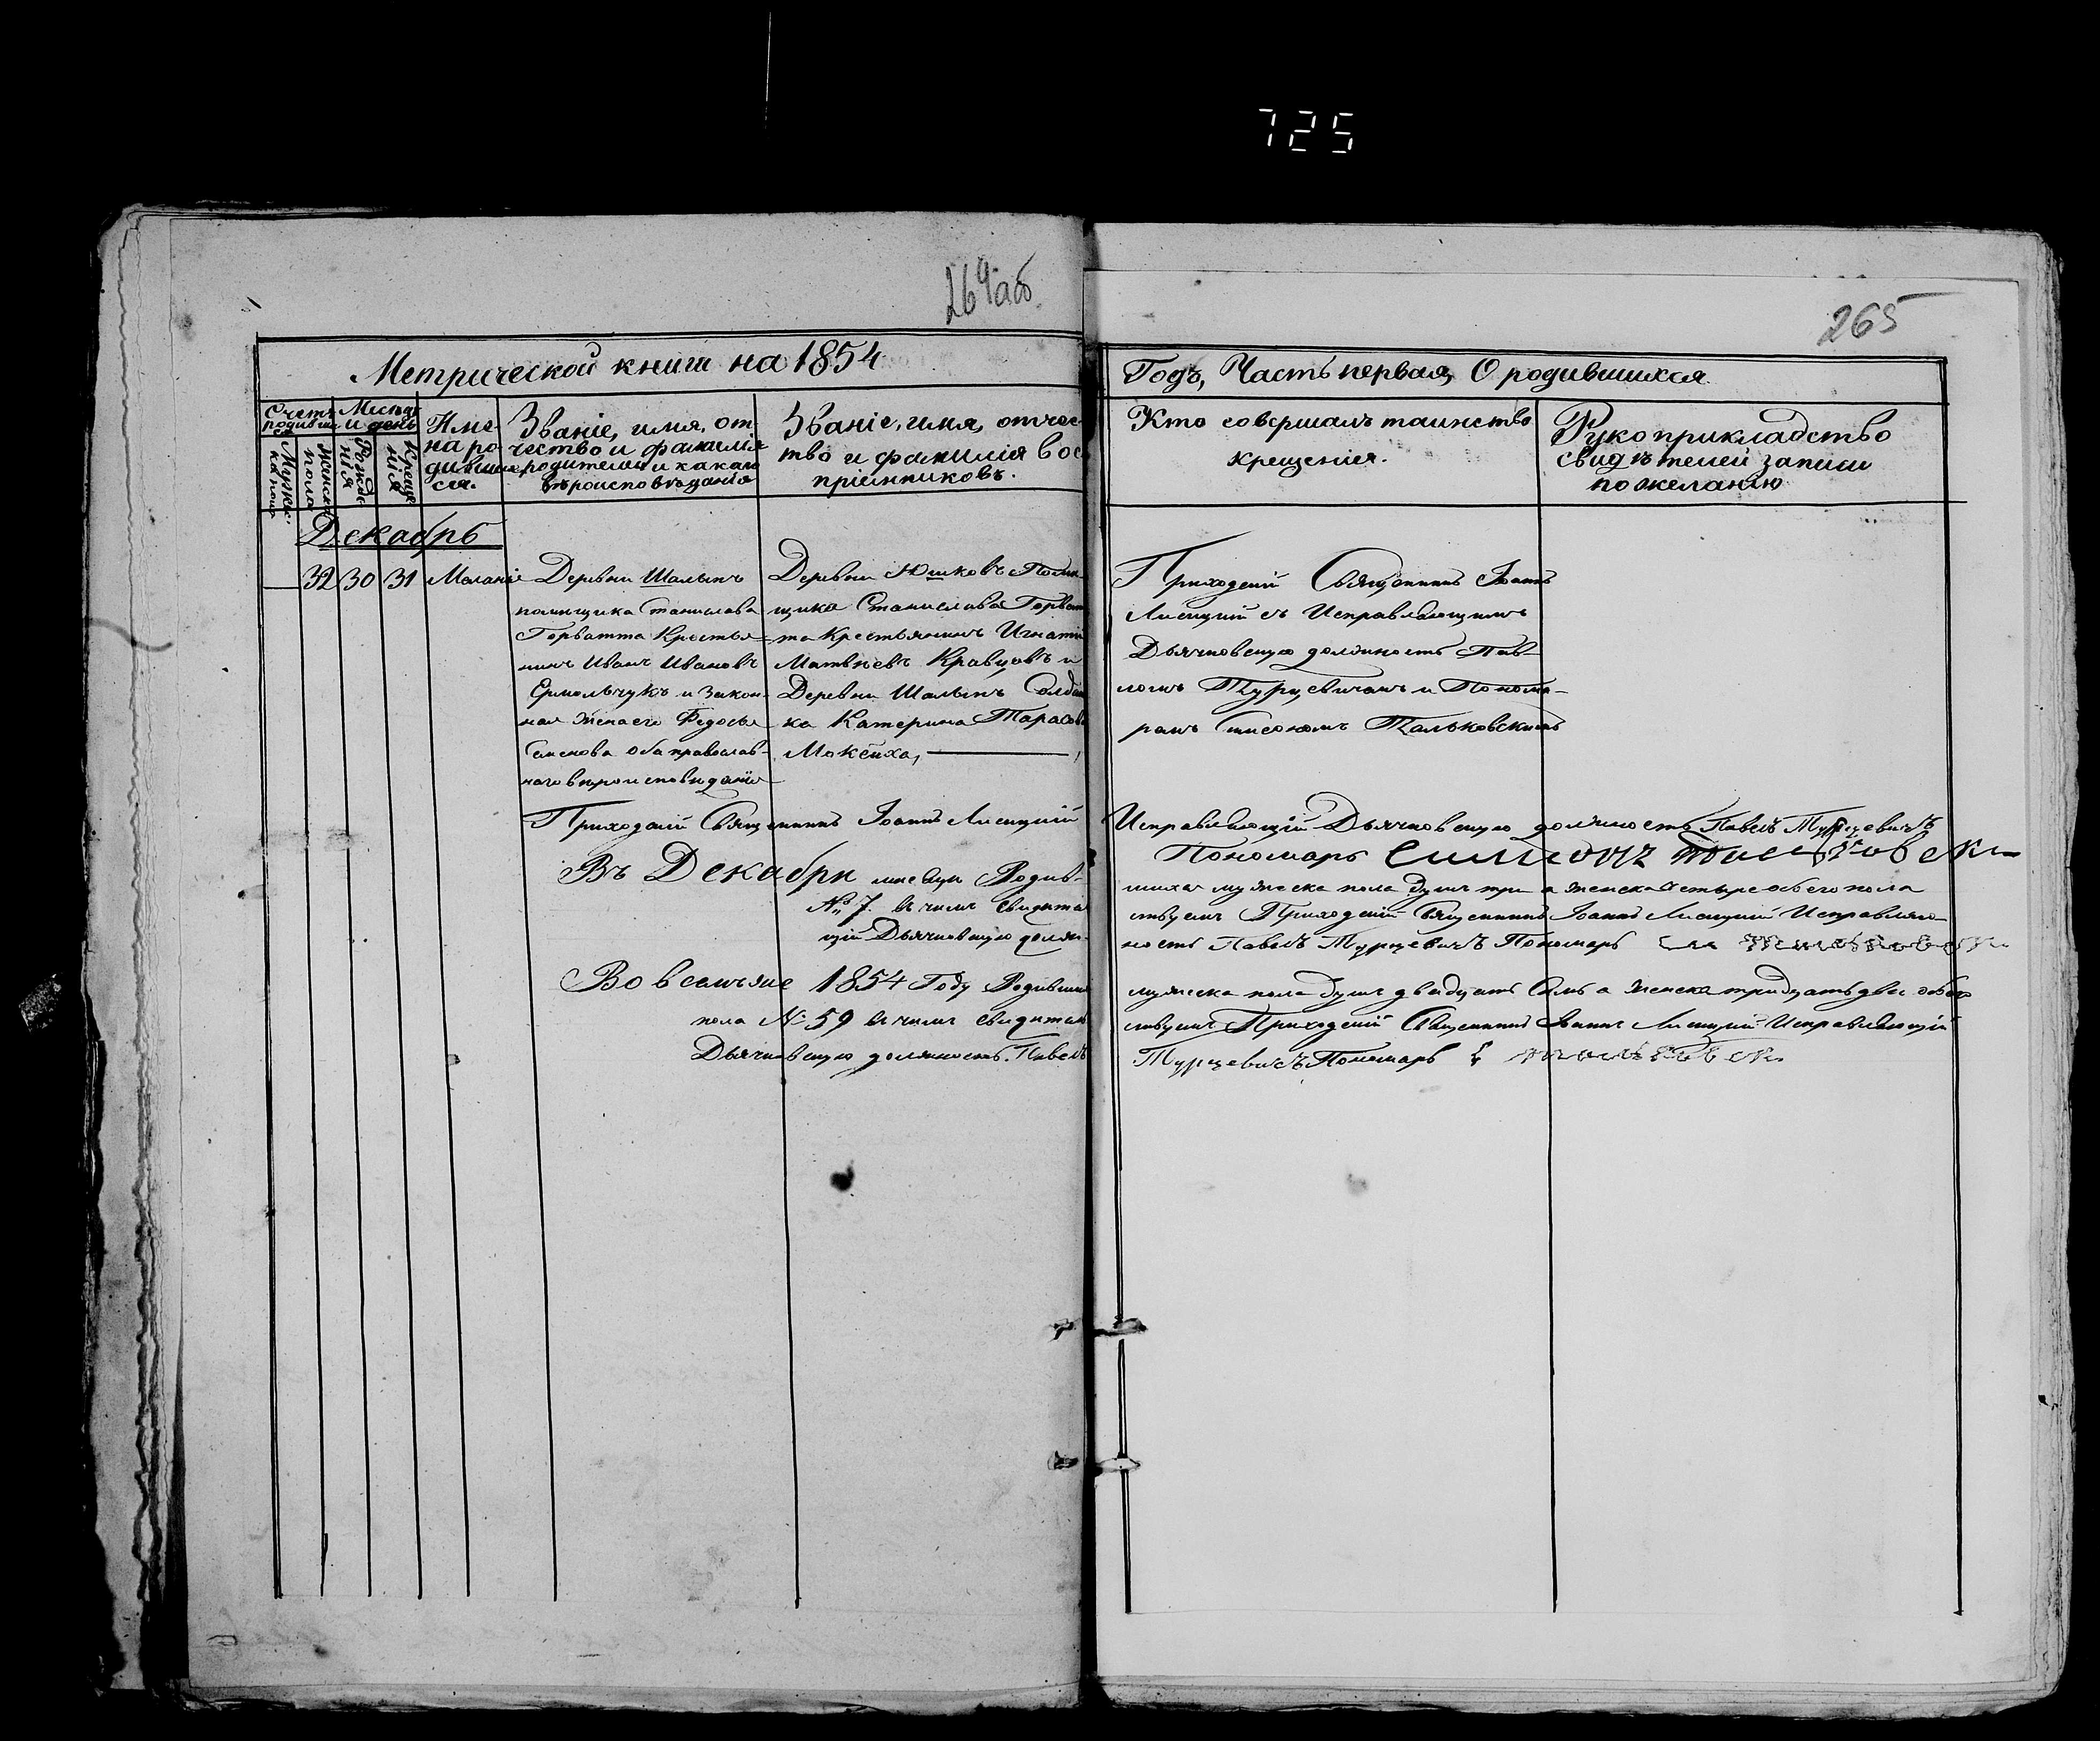 725
264аб
265
Метрической книги на 1854
Годъ, Часть первая, О родившихся.
Счетъ родивших ся
Мужеска пола
женска пола
Месяцъ и день
Рожденія
Крещенія
Имена родившихся.
Званіе, имя, от
чество и фамилія
родителей и какого
вѣроисповѣданія
Званіе, имя, отчес
тво и фамилія вос
пріемниковъ.
Кто совершалъ таинство
крещенія.
Рукоприкладство
свидѣтелей записи
по желанію
Декабрь
32 30 31 Маланія
Деревни Шалыпъ
помищика Станислава
Горватта Крестья-
нинъ Иванъ Ивановъ
Ермольчукъ и Закон-
ная жена его Федосья
Семенова оба православ-
наго вероисповиданія
Деревни Юшковъ Поми-
щика Станислава Горват
та Крестьянинъ Игнатій
Матвѣевъ Кравцовъ и
Деревни Шалыпъ Солдат
ка Катерина Тарасова
Мокеиха,
Приходскій Священникъ Іоаннъ
Лисицкій съ Исправляющимъ
Дьячковскую должность Пав-
ломъ Турцевичамъ и Понома-
рамъ Симеономъ Тальковскимъ
Приходскій Священникъ Іоаннъ Лисицкій
Исправляющій Дьячковскую должность Павелъ Турцевичъ
Пономарь Симеонъ
Въ Декабри месяци Родив-
шихся мужеска пола душъ три а женска четыре обоего пола
№ 7. в чемъ свидитель
ствуемъ Приходскій Священникъ Іоаннъ Лисицкій Исправляю-
щій Дьячковскую должн-
ность Павелъ Турцевичъ Пономарь
Во всемъ же 1854 Году Родивши
мужеска пола душъ двадцать Семь а женска тридцать две обоего
пола № 59 в чемъ свидитель
ствуемъ Приходскій Священникъ Іоаннъ Лисицкій Исправляющій
Дьячковскую должность. Павелъ
Турцевичъ Пономарь